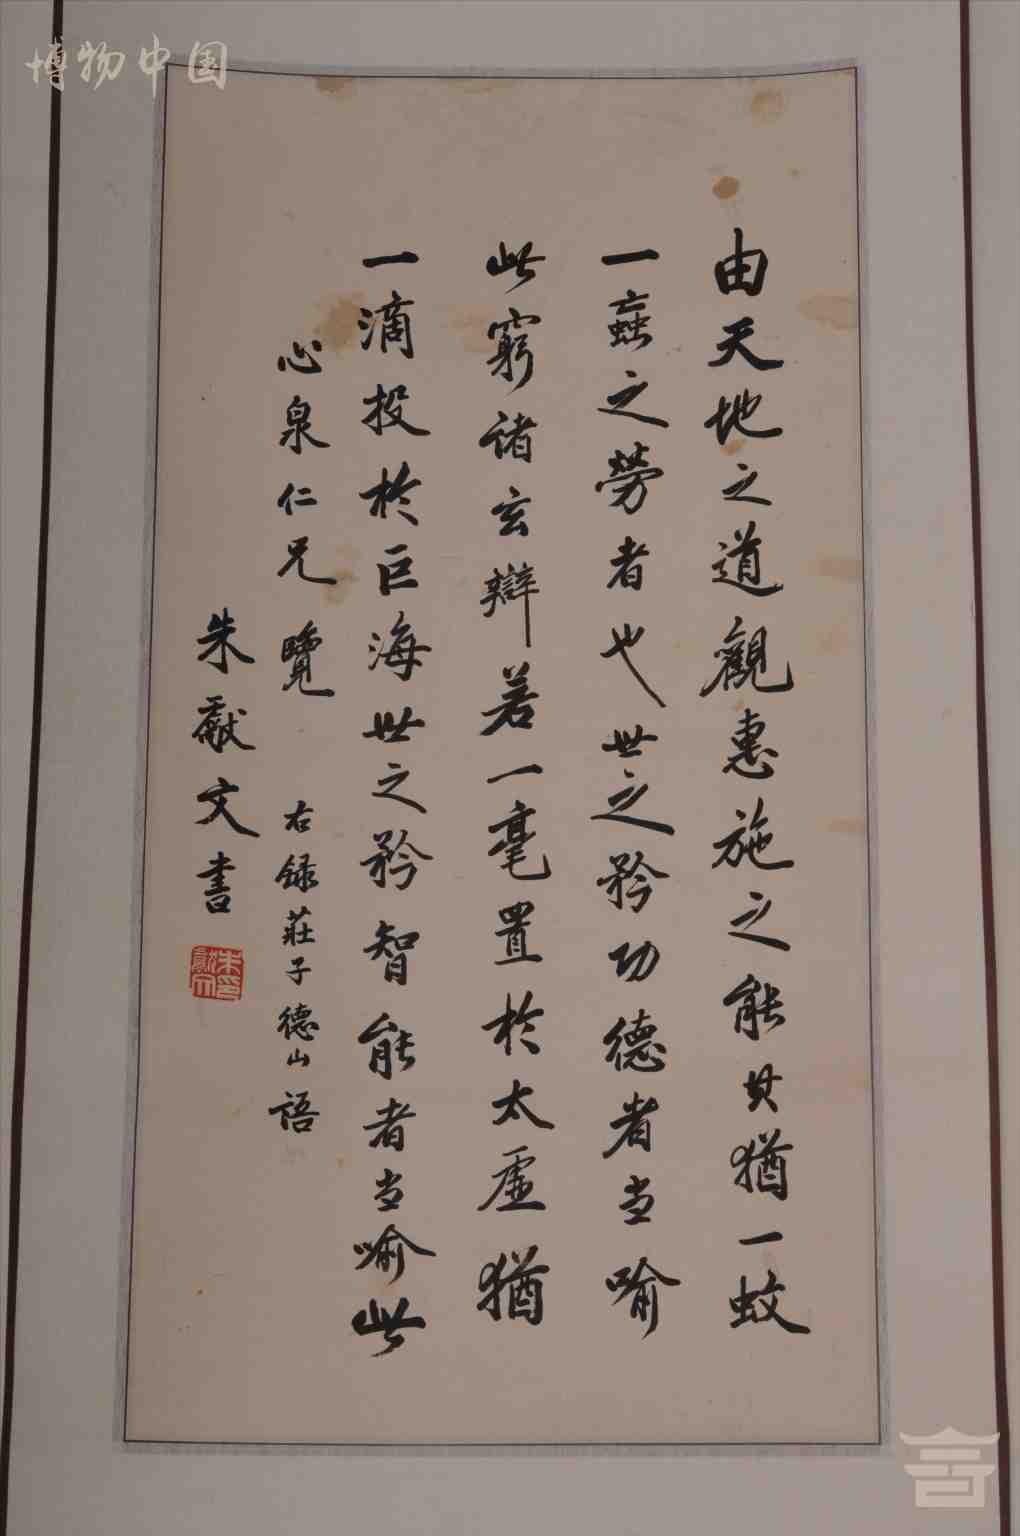 由天地之道觀惠施之能其猶一蚊
一蝱之勞者也世之矜功德者当喻
此窮諸玄辯若一毫置於太虛猶
一滴投於巨海世之矜智能者当喻此
心泉仁兄覽 右錄莊子德山語
朱獻文書
朱獻文印
博物中国